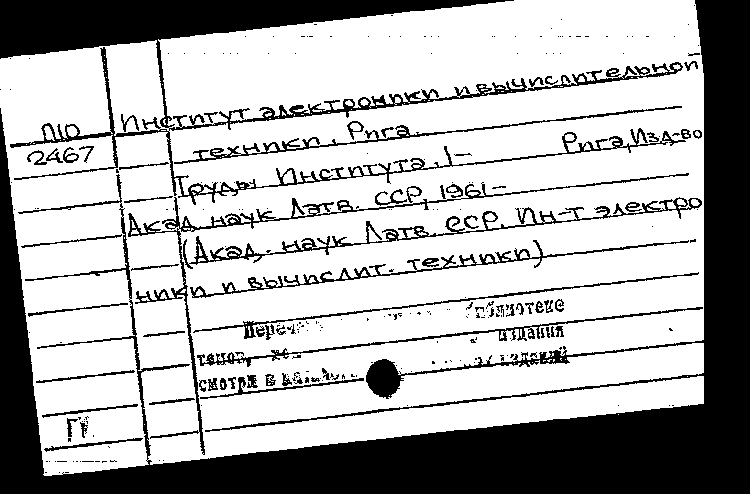 П10 Институт электроники и вычислительной
2467 техники. Рига.
Труды Института. 1- Рига, Изд-во
Акад наук Латв. ССР, 1961-
(Акад. наук Латв. ССР. Ин-т электро
ники и вычислит. техники)
библиотеке
томов, издания
смотри в изданий